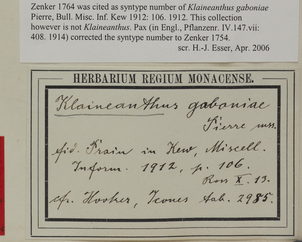 Zenker 1764 was cited as syntype number of Klaineanthus gaboniae
Pierre, Bull. Misc. Inf. Kew 1912: 106. 1912. This collection
however is not Klaineanthus. Pax (in Engl., Pflanzenr. IV.147.vii:
408. 1914) corrected the syntype number to Zenker 1754.
scr. H.-J. Esser, Apr. 2006
HERBARIUM REGIUM MONACENSE.
Klaineanthus gaboniae
Pierre mss.
fid. Prain in Kew, Miscell.
Inform. 1912, p. 106.
Ross X. 13.
cf. Hooker, Icones tab. 2985.